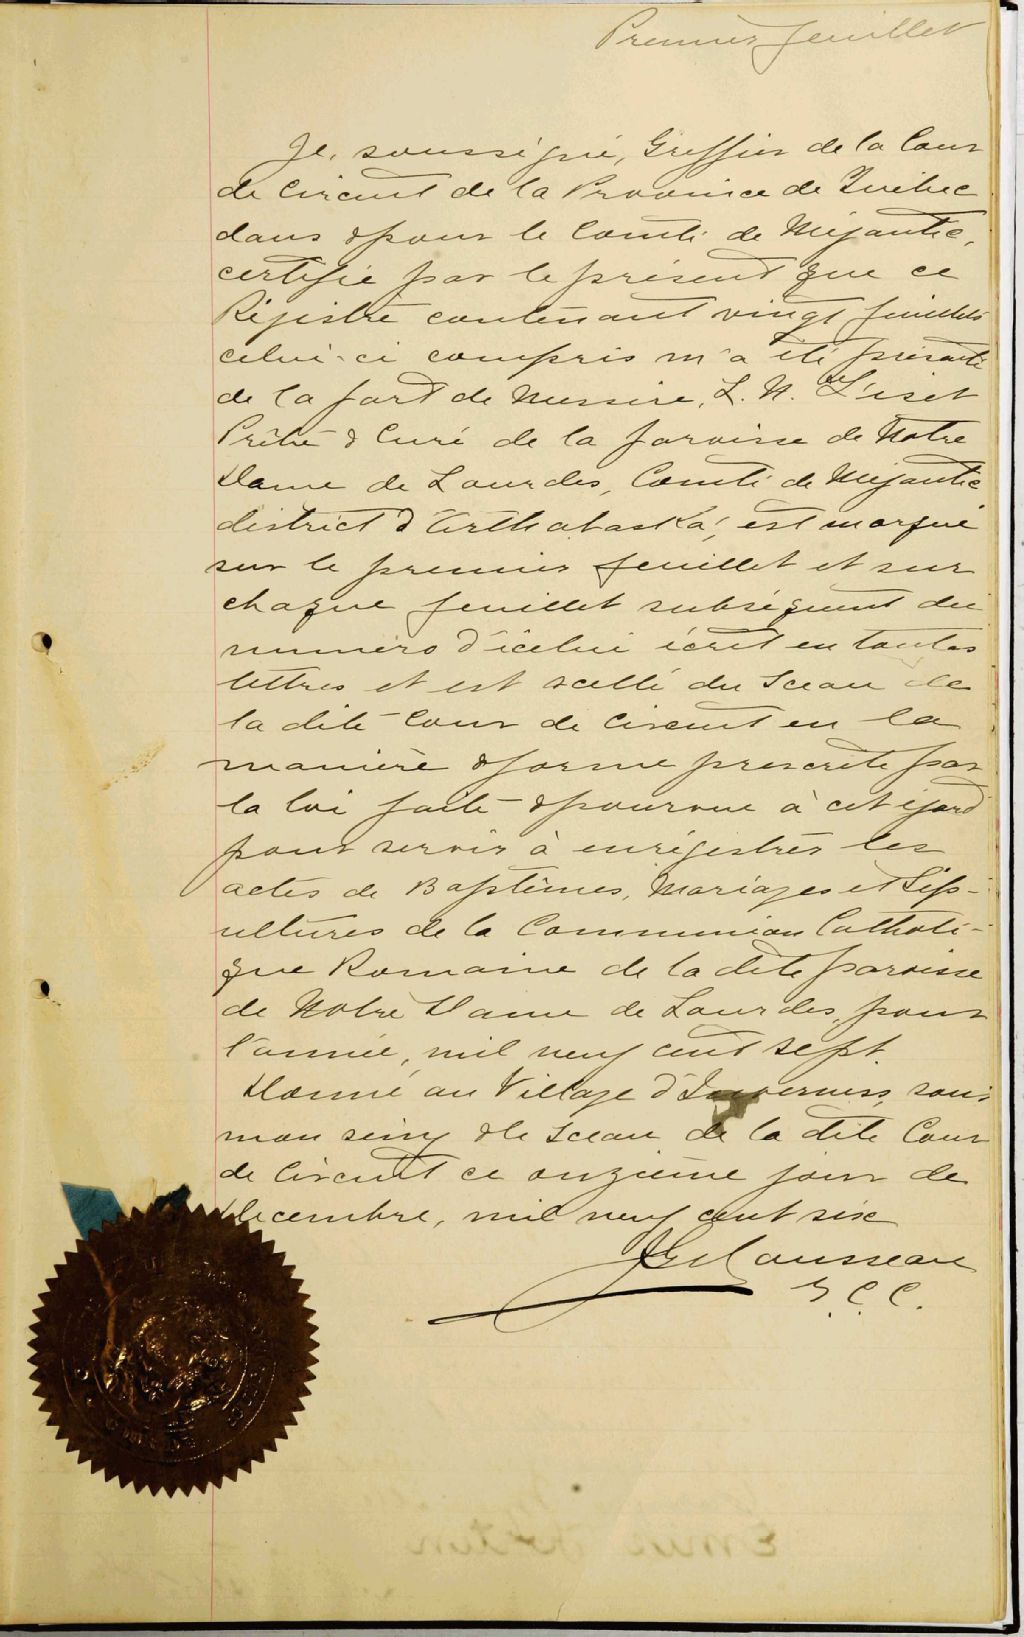 Premier feuillet
Je, soussigné, Greffier de la Cour
de Circuit de la Province de Québec
dans & pour le Comté de Mégantic,
certifie par le présent que ce
Régistre contenant vingt feuillets
celui-ci compris m'a été présenté
de la part de Messire, L. N.
Prêtre & Curé de la paroisse de Notre
Dame de Lourdes, Comté de Mégantic
district d'Arthabaska, est marqué
sur le premier feuillet et sur
chaque feuillet subséquent du
numéro d'icelui écrit en toutes
lettres et est scellé du Sceau de
la dite Cour de Circuit en la
manière & forme prescrite par
la loi faite & pourvue à cet égard
pour servir à enrégistrer les
actes de Baptêmes, Mariages et Sép-
ultures de la Communion Catholi-
que Romaine de la dite paroisse
de Notre Dame de Lourdes, pour
l'année, mil neuf cent sept.
Donné au Village d'Inverness, sous
mon seing & le Sceau de la dite Cour
de Circuit ce onzième jour de
Decembre, mil neuf cent six
Rousseau
G. C. C.